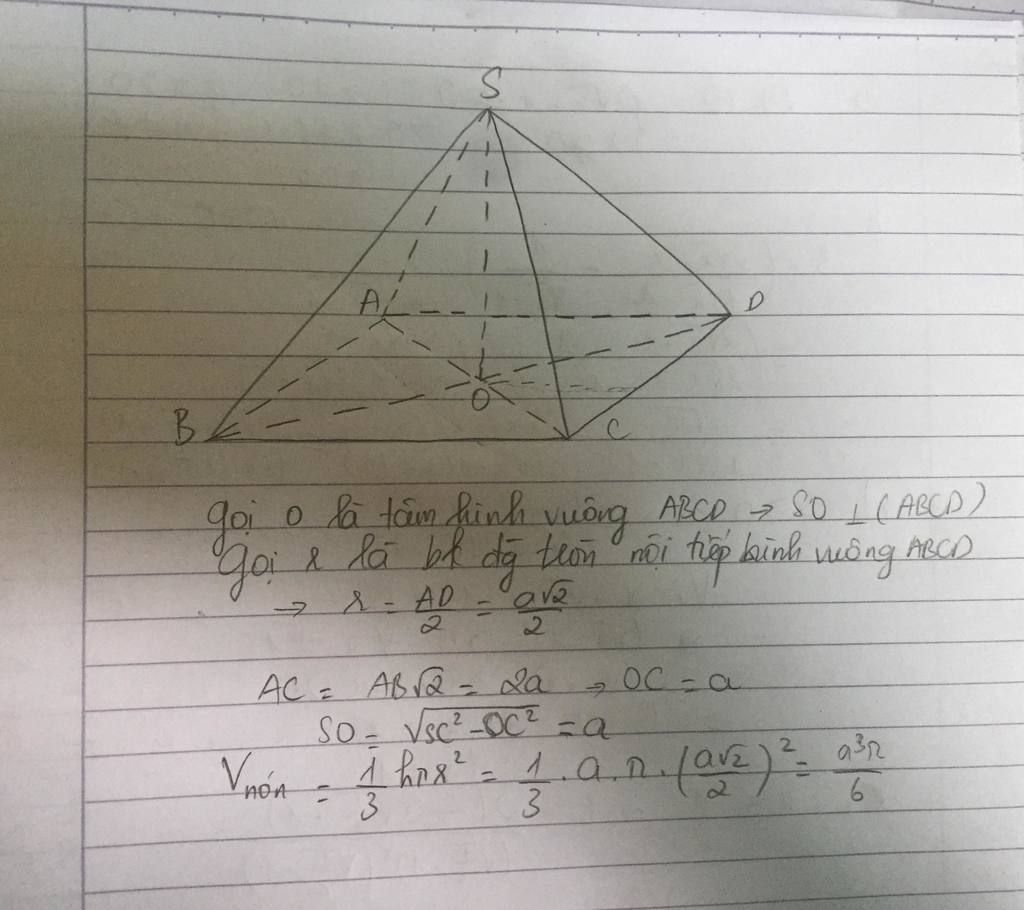 S
A
D
O
B
C
Gọi O là tâm hình vuông ABCD → SO ⊥ (ABCD)
Gọi r là bk đg tròn nội tiếp hình vuông ABCD
→ r = AD/2 = a√2/2
AC = AB√2 = 2a → OC = a
SO = √(SC² - OC²) = a
Vnón = 1/3 hπr² = 1/3 . a . π . (a√2/2)² = a³π/6